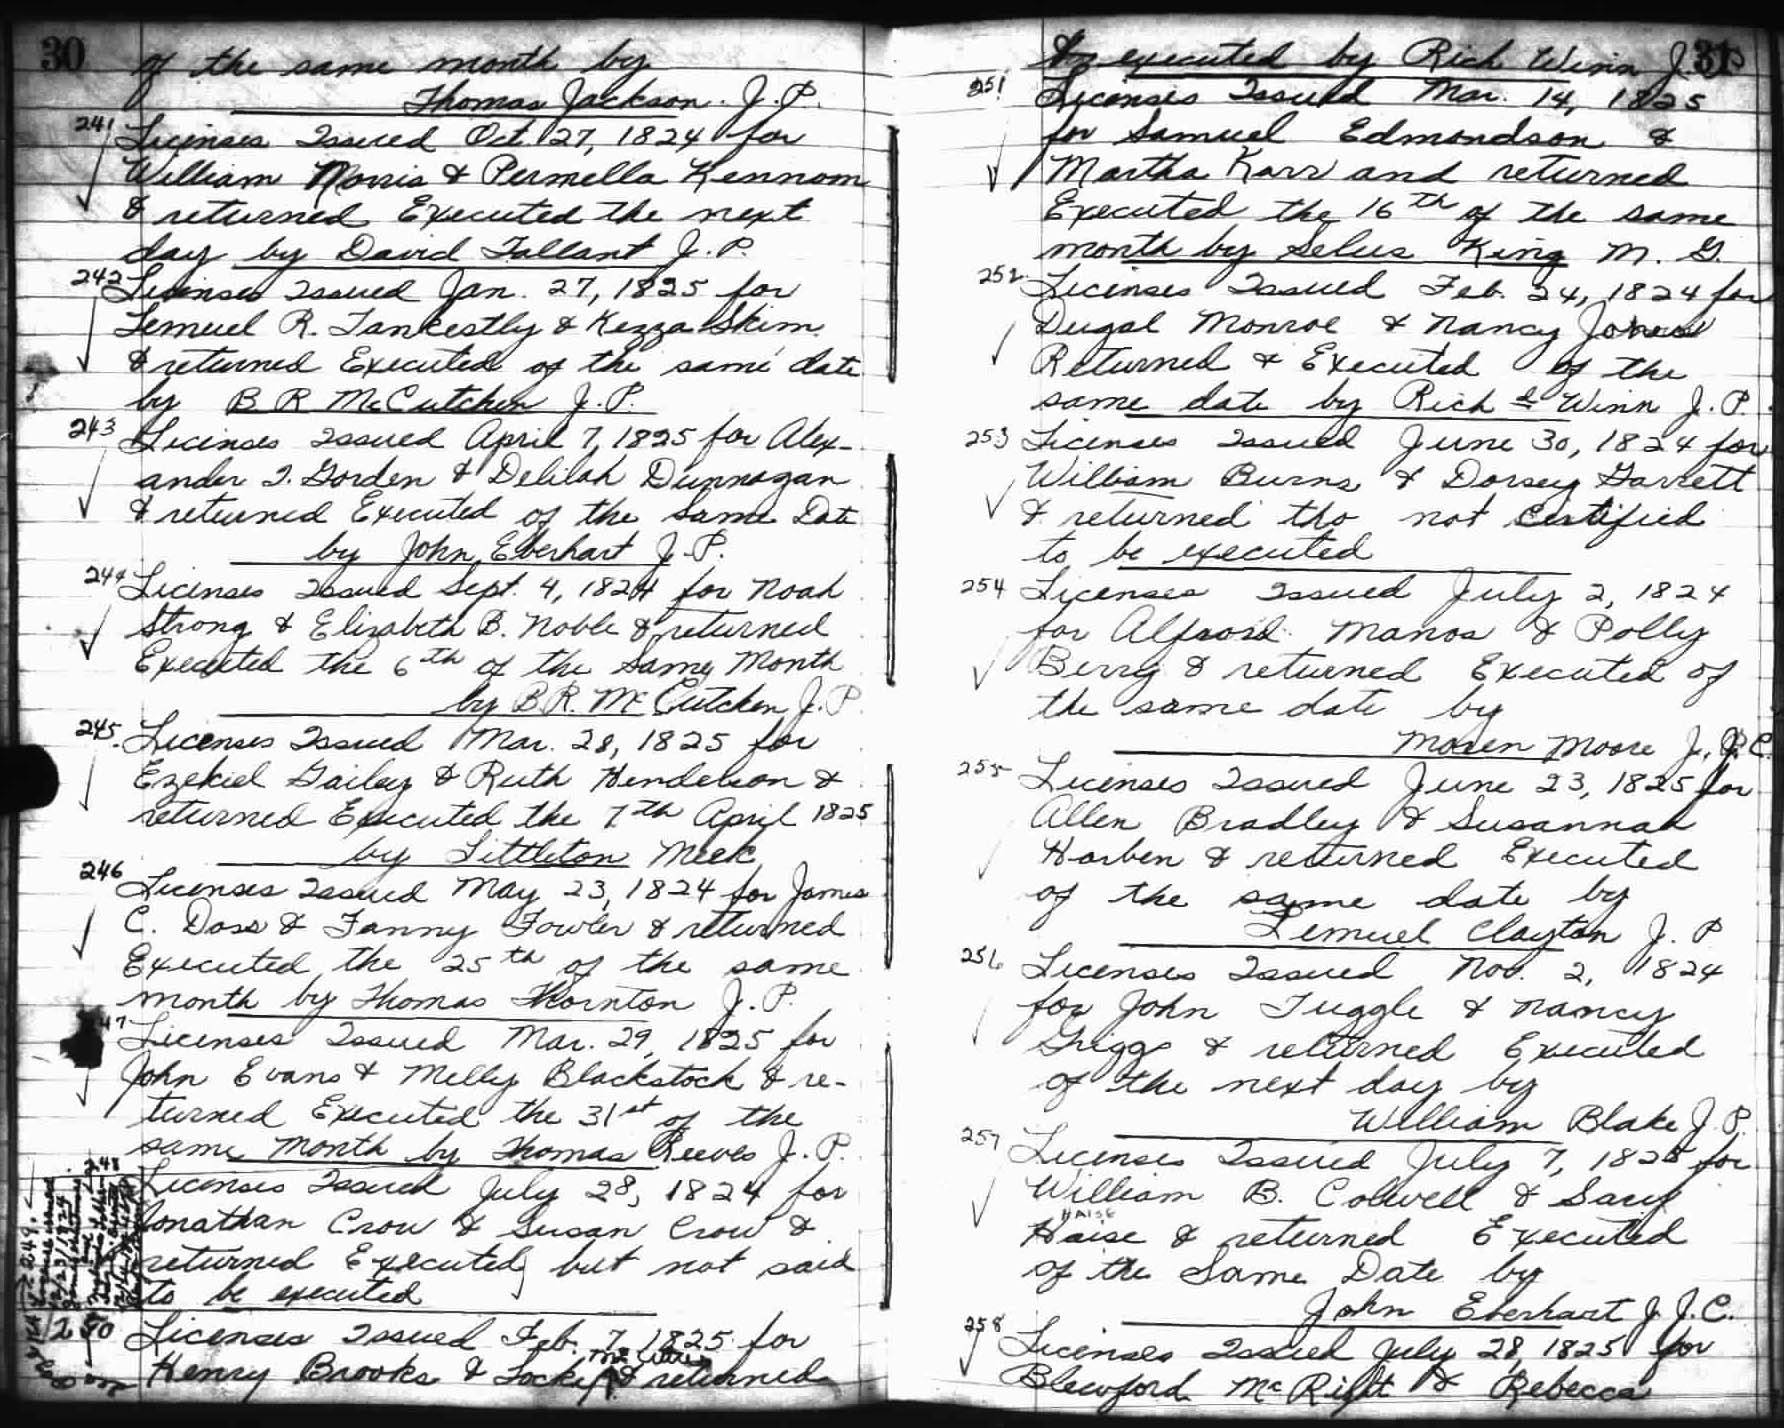 30
of the same month by
Thomas Jackson. J. P.
241 Licenses Issued Oct. 27, 1824 for
William Morris & Permella Kennom
& returned Executed the next
day by David Tallant J. P.
242 Licenses Issued Jan. 27, 1825 for
Lemuel R. Tankestly & Kezza Skim
& returned Executed of the same date
by B R McCutchen J. P.
243 Licenses Issued April 7, 1825 for Alex-
ander I. Gorden & Delilah Dunnagan
& returned Executed of the Same Date
by John Eberhart J. P.
244 Licenses Issued Sept. 4, 1824 for Noah
Strong & Elizabeth B. Noble & returned
Executed the 6th of the Same Month
by B.R. McCutchen J. P.
245. Licenses Issued Mar. 28, 1825 for
Ezekiel Gailey & Ruth Henderson &
returned Executed the 7th April 1825
by Littleton Meek
246 Licenses Issued May 23, 1824 for James
C. Doss & Fanny Fowler & returned
Executed the 25th of the same
month by Thomas Thornton J. P.
47 Licenses Issued Mar. 29, 1825 for
John Evans & Melly Blackstock & re-
turned Executed the 31st of the
same month by Thomas Reeves J. P.
248
Licenses Issued July 28, 1824 for
Jonathan Crow & Susan Crow &
returned Executed, but not said
to be executed
249.
250 Licenses Issued Feb. 7, 1825 for
Henry Brooks & returned
31
executed by Rich Winn J. P.
251 Licenses Issued Mar. 14, 1825
for Samuel Edmondson &
Martha Karr and returned
Executed the 16th of the same
month by Selus King M. G.
252 Licenses Issued Feb. 24, 1824 for
Dugal Monroe & Nancy Jones
Returned & Executed of the
same date by Richd Winn J. P.
253 Licenses Issued June 30, 1824 for
William Burns & Dorsey Garrett
& returned tho not Certified
to be executed
254 Licenses Issued July 2, 1824
for Alfaord Manos & Polly
Berry & returned Executed of
the same date by
Moren Moore J. P. C.
255 Licenses Issued June 23, 1825 for
Allen Bradley & Susannah
Harben & returned Executed
of the same date by
Lemuel Clayton J. P.
256 Licenses Issued Nov. 2, 1824
for John Tuggle & Nancy
Griggs & returned Executed
of the next day by
William Blake J. P.
257 Licenses Issued July 7, 1825 for
William B. Colwell & Sary
HAISE
Haise & returned Executed
of the Same Date by
John Eberhart J. J. C.
258 Licenses Issued July 28, 1825 for
Blewford McRight & Rebecca